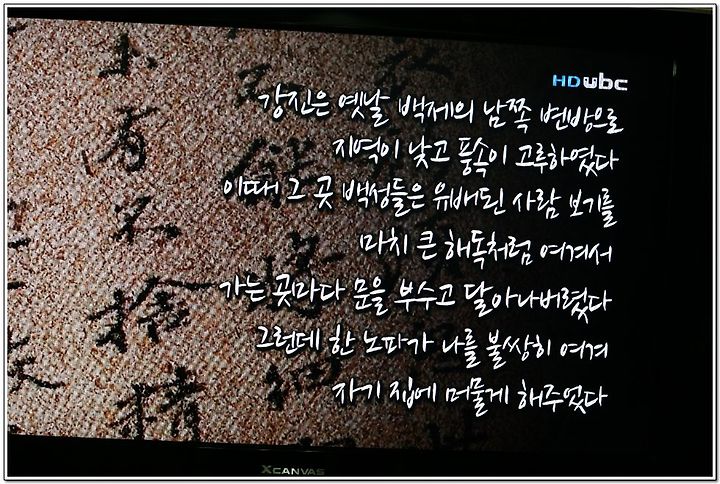 HD ubc
강진은 옛날 백제의 남쪽 변방으로
지역이 낮고 풍속이 고루하였다
이때 그 곳 백성들은 유배된 사람 보기를
마치 큰 해독처럼 여겨서
가는 곳마다 문을 부수고 달아나버렸다
그런데 한 노파가 나를 불쌍히 여겨
자기 집에 머물게 해주었다
有不捨
XCANVAS